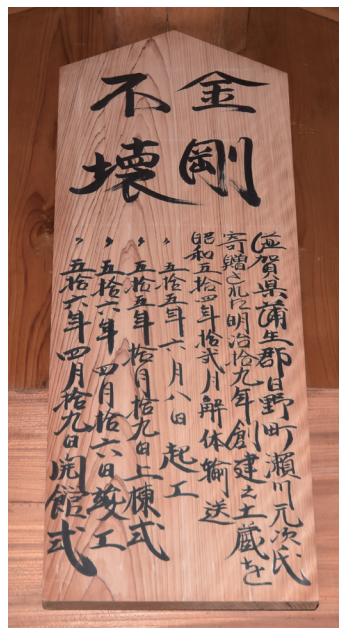 金剛
不壊
滋賀県蒲生郡日野町瀬川元次氏
寄贈された明治拾九年創建之土蔵を
昭和五拾四年拾弐月解体輸送
〃五拾五年六月八日起工
〃五拾五年拾月拾九日上棟式
〃五拾六年四月拾六日竣工
〃五拾六年四月拾九日開館式